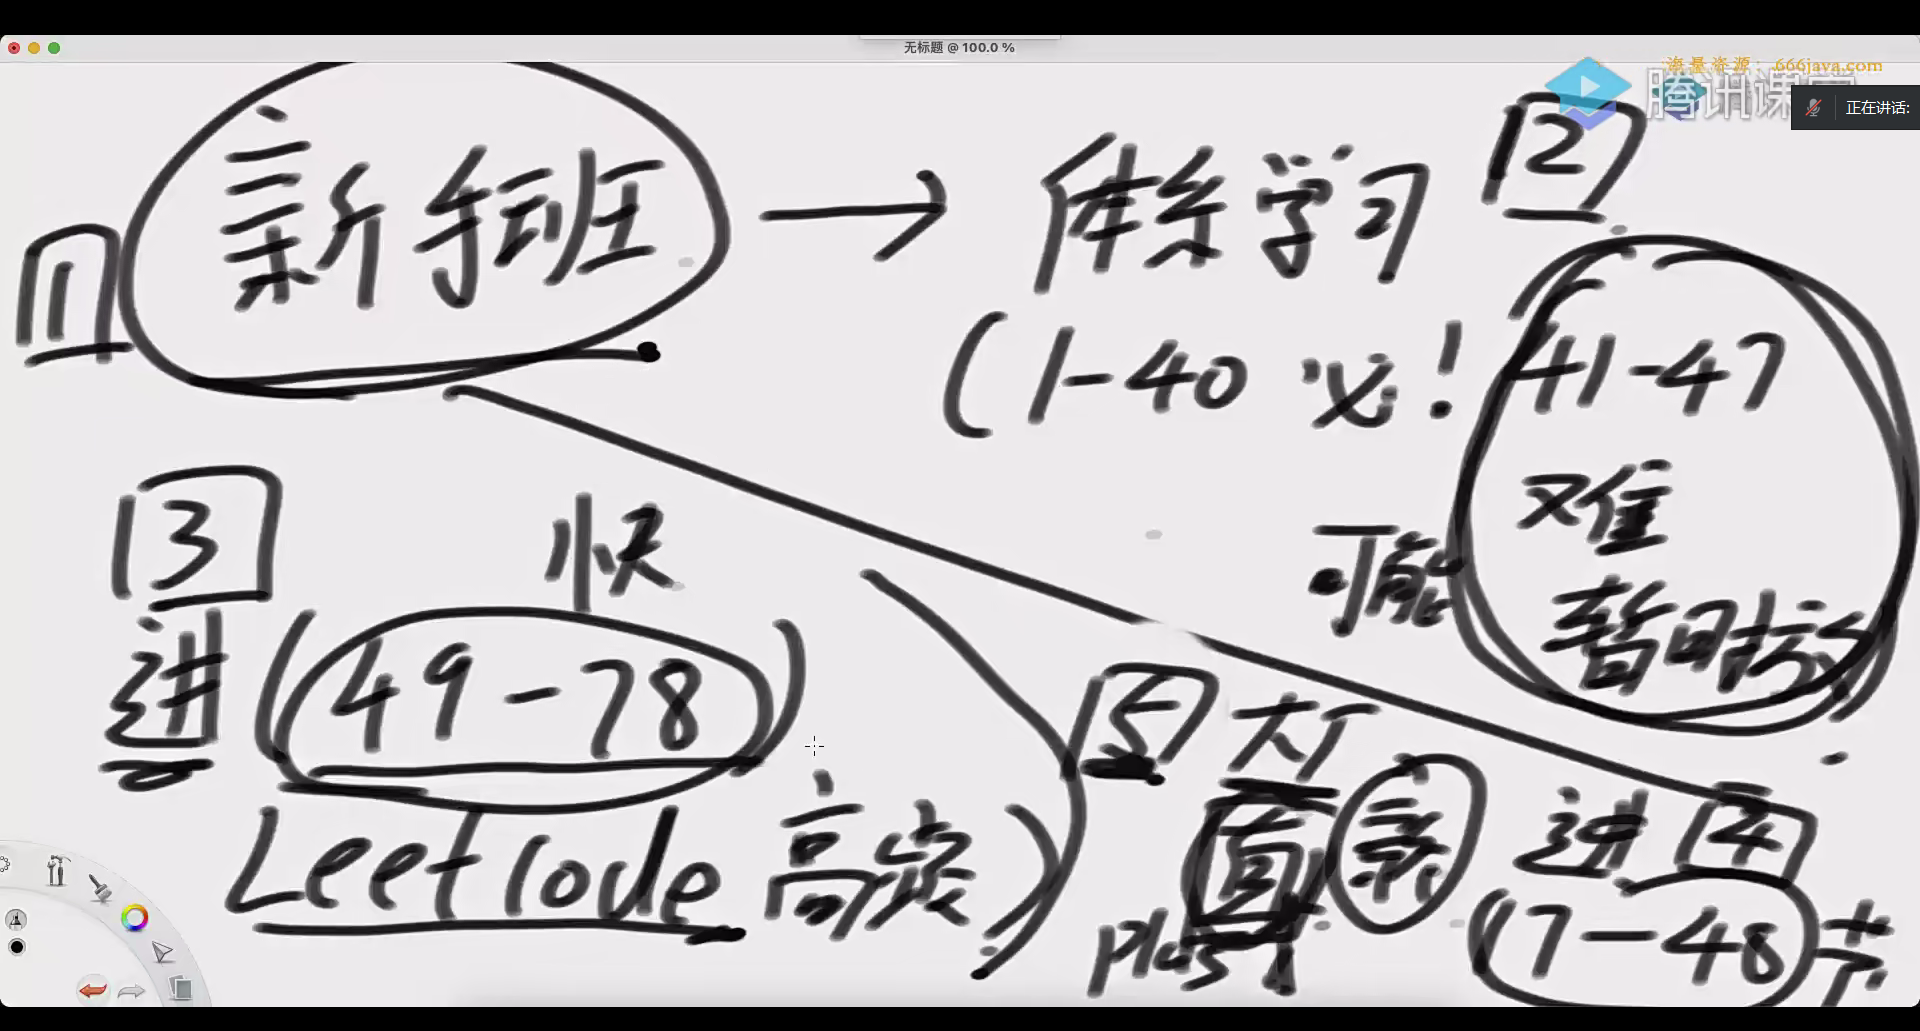 无标题 @ 100.0 %
海量资源：666java.com
腾讯课堂
正在讲话:
1 新手班 → 体系学习 2
(1-40 必!
41-47
难
可能 暂时放
3 快
进 (49-78)
LeetCode 高频)
5 大厂
真 新
plus
进 4
(7-48 节